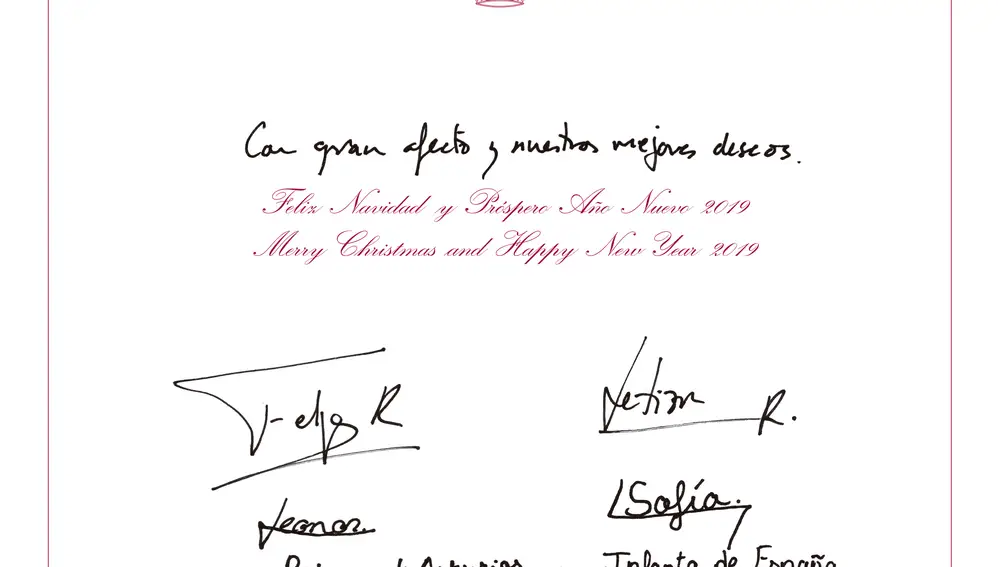 Con gran afecto y nuestros mejores deseos.
Feliz Navidad y Próspero Año Nuevo 2019
Merry Christmas and Happy New Year 2019
Felipe R
Letizia R.
Leonor.
Sofía.
Princesa de Asturias
Infanta de España